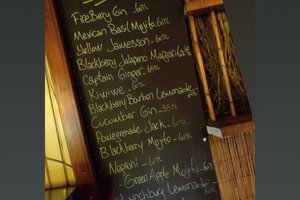 FireBerry Gin - 60TL
Mexican Basil Mojito - 60TL
Yellow Jameson - 60TL
Blackberry Jalapeno Margarita 60TL
Captain Ginger - 60TL
Kiwiwe - 60TL
Blackberry Bourbon Lemonade 60TL
Cucumber Gin - 55TL
Pomegrenade Jack - 60TL
Blackberry Mojito - 60TL
Negroni - 60TL
- Green Apple Mojito - 60TL
Lynchburg Lemonade